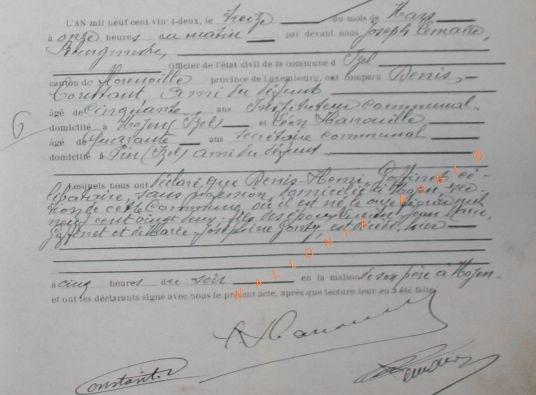 L'AN mil neuf cent vingt-deux, le treize du mois de Mars
à onze heures du matin par devant nous Joseph Lemaire,
Bourgmestre,
Officier de l'état civil de la commune d Izel
canton de Florenville province de Luxembourg, ont comparu Denis
Constant ami du défunt
âgé de Cinquante ans Instituteur communal
domicilié à Moyen (Izel) et Léon Hanouille
âgé de Quarante ans secrétaire communal
domicilié à Pin (Izel) ami du défunt
Lesquels nous ont déclaré que Denis-Henri, Goffinet cé-
libataire, sans profession, domicilié à Moyen, sec-
tion de cette Commune, où il est né le onze
cent vingt deux, fils des époux Jean
Goffinet et de Marie Joséphine est décédé, hier
à cinq heures du soir en la maison de son père à Moyen.
et ont les déclarants signé avec nous le présent acte, après que lecture leur en a été faite.
WALLONIA
Constant D
Lemaire
6